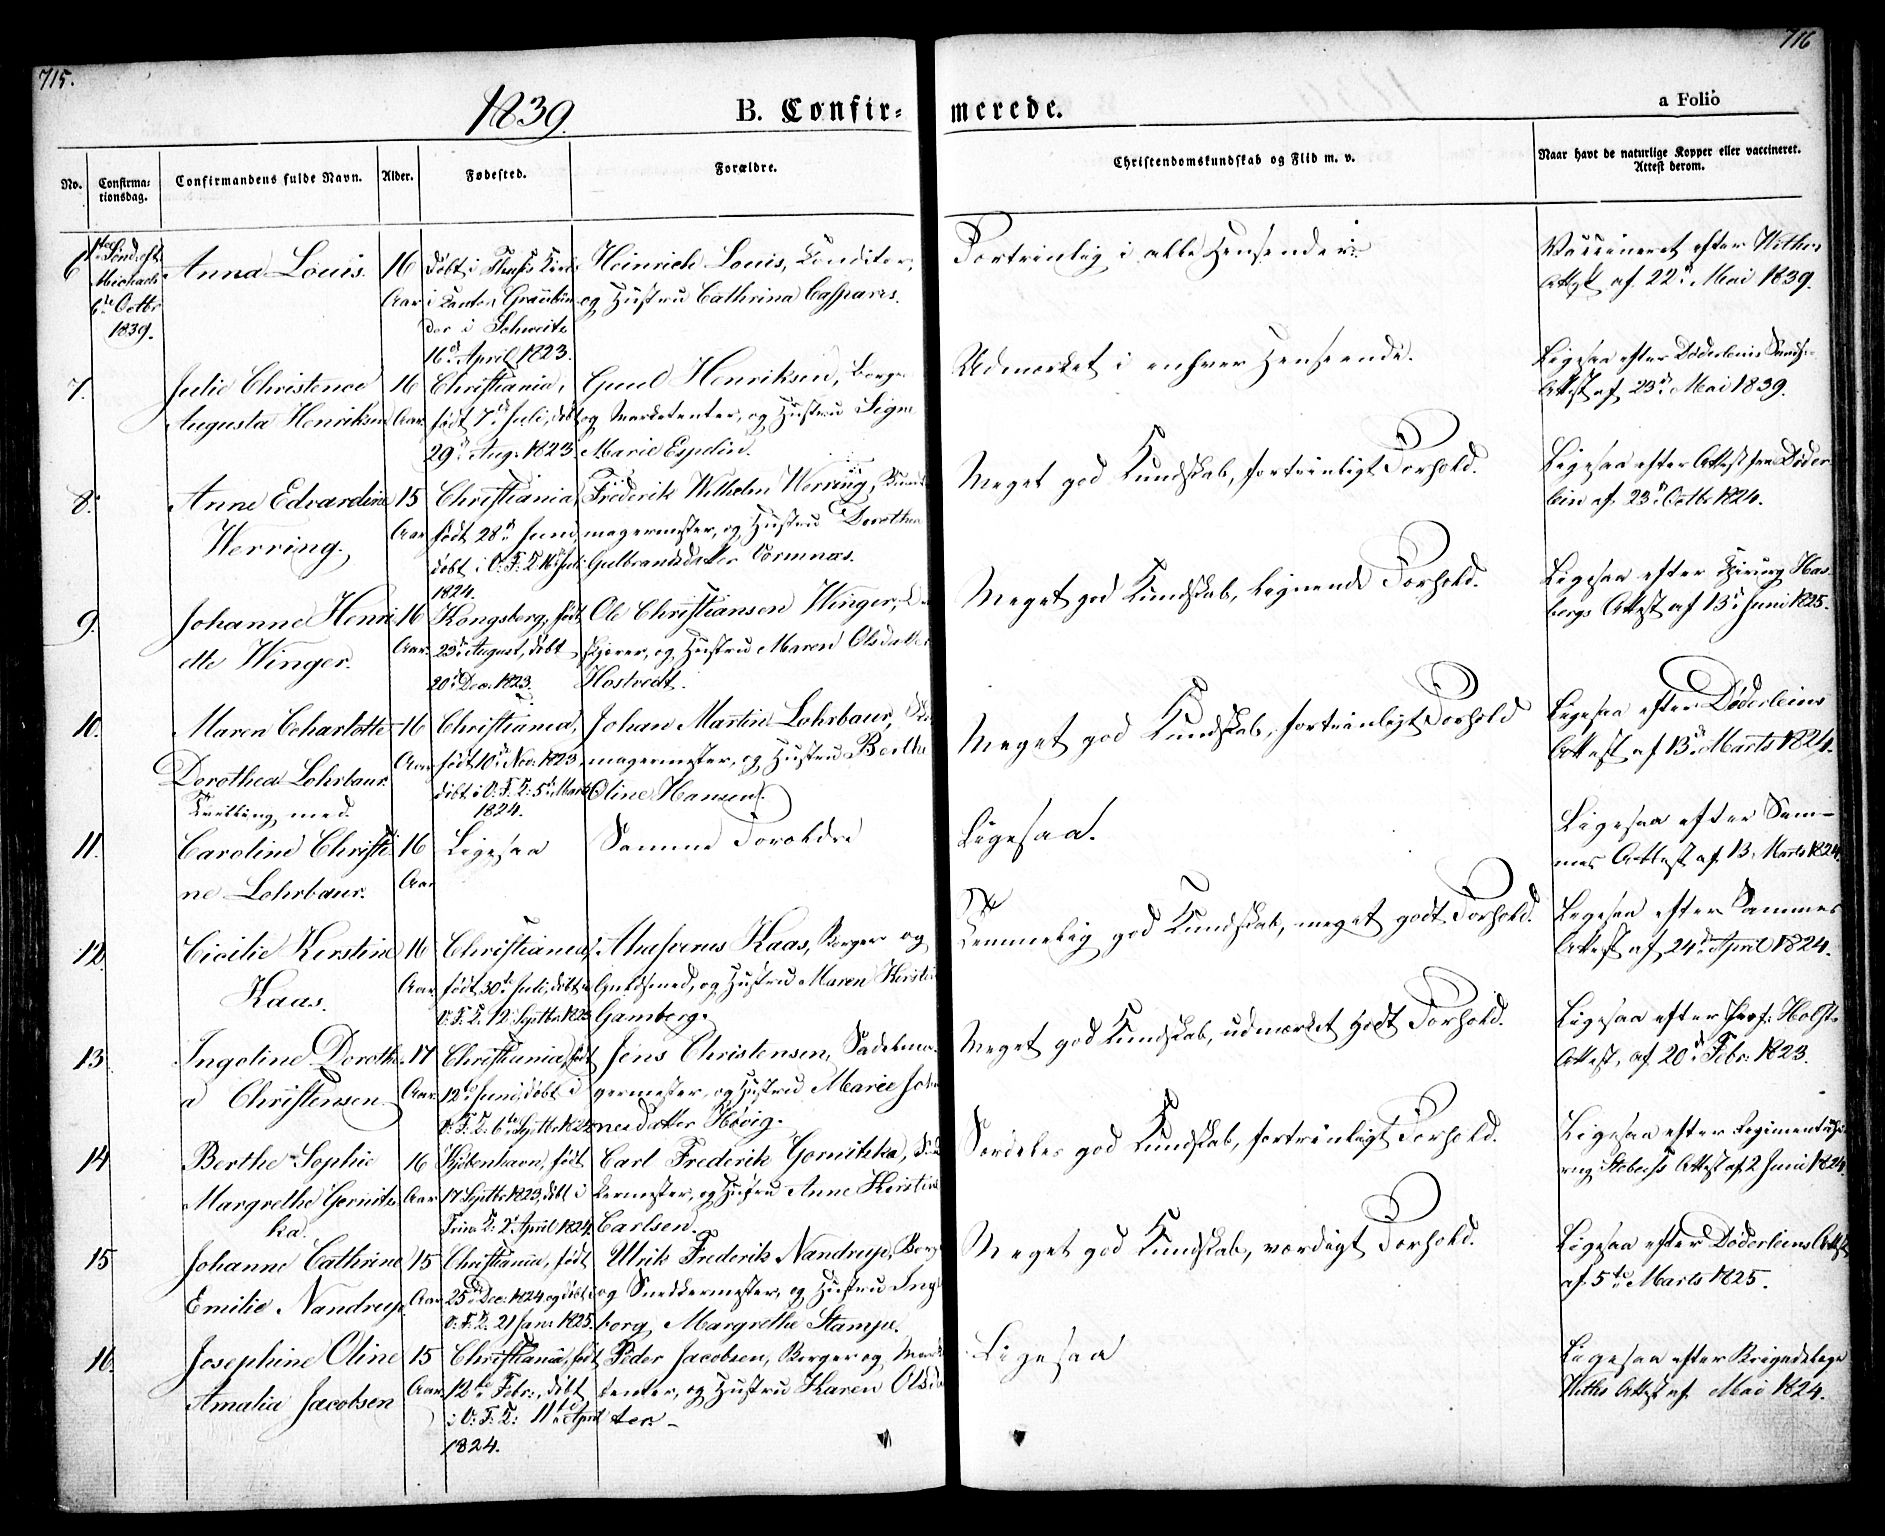 715.
716
1839.
B. Confir-
merede.
a Folio
No.
Confirma-
tionsdag.
Confirmandens fulde Navn.
Alder.
Fødested.
Forældre.
Christendomskundskab og Flid m. v.
Naar havt de naturlige Kopper eller vaccineret.
Attest derom.
6
Michaeli
6te Octbr
1839.
Anna Louis.
16
Aar
døbt i
i Canton Graubün-
den i Schweitz
16d April 1823.
Heinrich Louis, Conditor,
og Hustru Cathrina Caspares.
Fortrinlig i alle Henseender.
Vaccineret efter Withs
Attest af 22d Mai 1839.
7.
Julie Christence
Augusta Henriksen
16
Aar
Christiania,
født 7d Juli, døbt
29d Aug. 1823
Henriksen, Borger
og Marketenter, og Hustru Signe
Marie Espelin.
Udmærket i enhver Henseende.
Ligesaa efter Døderleins
Attest af 23d Mai 1839.
8.
Anne Edvardine
Werring.
15
Aar
Christiania,
født 28d Juni,
døbt i V. F. K. 16d Juli
1824.
Frederik Wilhelm Werring,
magermester, og Hustru Dorothea
Gulbrandsdatter
Meget god Kundskab, fortrinligt Forhold.
Ligesaa efter Attest fra Døder-
lein af 23d Octb 1824.
9.
Johanne Henri-
ette Winger.
16
Aar
Kongsberg, født
23d August, døbt
20d Dec. 1823.
Ole Christiansen Winger,
og Hustru Maren Olsdatter
Hostvedt.
Meget god Kundskab, lignende Forhold.
Ligesaa efter Chirurg Has-
bergs Attest af 13d Juni 1825.
10.
Maren Charlotte
Dorothea Lohrbaur.
Tvilling med
16
Aar
Christiania,
født 10d Nov. 1823,
døbt i V. F. K. 5d Marts
1824.
Johan Martin Lohrbaur,
magermester, og Hustru Berthe
Oline Hansen.
Meget god Kundskab, fortrinligt Forhold
Ligesaa efter Døderleins
Attest af 13d Marts 1824.
11.
Caroline Christi-
ne Lohrbaur.
16
Aar
Ligesaa
Samme Forældre
Ligesaa.
Ligesaa efter Sam-
mes Attest af 13. Marts 1824.
12.
Cicilie Kerstine
Kaas.
16
Aar
Christiania,
født 30d Juli, døbt i
V. F. K. 12 Septbr. 1823
Ahasverus Kaas, Borger og
Guldsmed, og Hustru Maren Kirstine
Gamborg.
Temmelig god Kundskab, meget godt Forhold.
Ligesaa efter Sammes
Attest af 24d April 1824.
13.
Ingoline Dorothe-
a Christensen.
17
Aar
Christiania, født
12te Juni, døbt i
V. F. K. 6te Septbr 1822
Jens Christensen, Sadelma-
germester, og Hustru Marie Johan-
nesdatter Høvig.
Meget god Kundskab, udmærket godt Forhold.
Ligesaa efter Prof. Holsts
Attest af 20d Febr. 1823.
14
Berthe Sophie
Margrethe Gornitz-
ka.
16
Aar
Kjøbenhavn, født
17 Septbr 1823, døbt i
Trin. K. 2d April 1824.
Carl Frederik Gornitzka,
kermester, og Hustru Anne Kirstine
Carlsen.
Særdeles god Kundskab, fortrinligt Forhold.
Ligesaa efter Regimentschi-
rurg Attest af 2 Juni 1824
15
Johanne Cathrine
Emilie Nandrup.
15
Aar
Christiania, født
25de Dec. 1824 og døbt i
V. F. K. 21 Janr 1825.
Ulrik Frederik Nandrup, Borger
og Snedkermester, og Hustru Inge-
borg Margrethe Stampe.
Meget god Kundskab, værdigt Forhold.
Ligesaa efter Døderleins Attest
af 5te Marts 1825.
16.
Josephine Oline
Amalia Jacobsen
15
Aar
Christiania, født
12te Febr., døbt
i V. F. K. 11te April
1824.
Peder Jacobsen, Borger og Marke-
tenter, og Hustru Karen Olsdat-
ter.
Ligesaa
Ligesaa efter Brigadelæge
Withs Attest af Mai 1824.